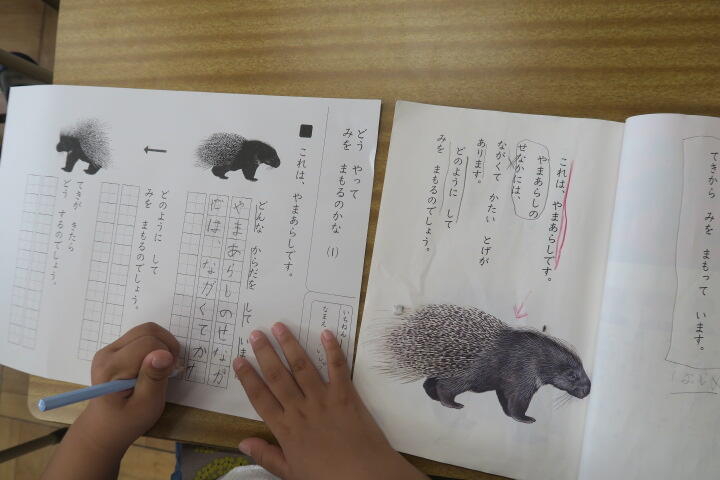 てきから みを まもって います。
これは、やまあらしです。
やまあらしの
せなかには、
ながくて かたい とげが
あります。
どのように して
みを まもるのでしょう。
どう やって
みを まもるのかな (1)
いちねん
なまえ
これは、やまあらしです。
どんな からだを して いま
やまあらしのせなか
には、ながくてか
どのように して
みを まもるのでしょう。
てきが きたら
どう するのでしょう。